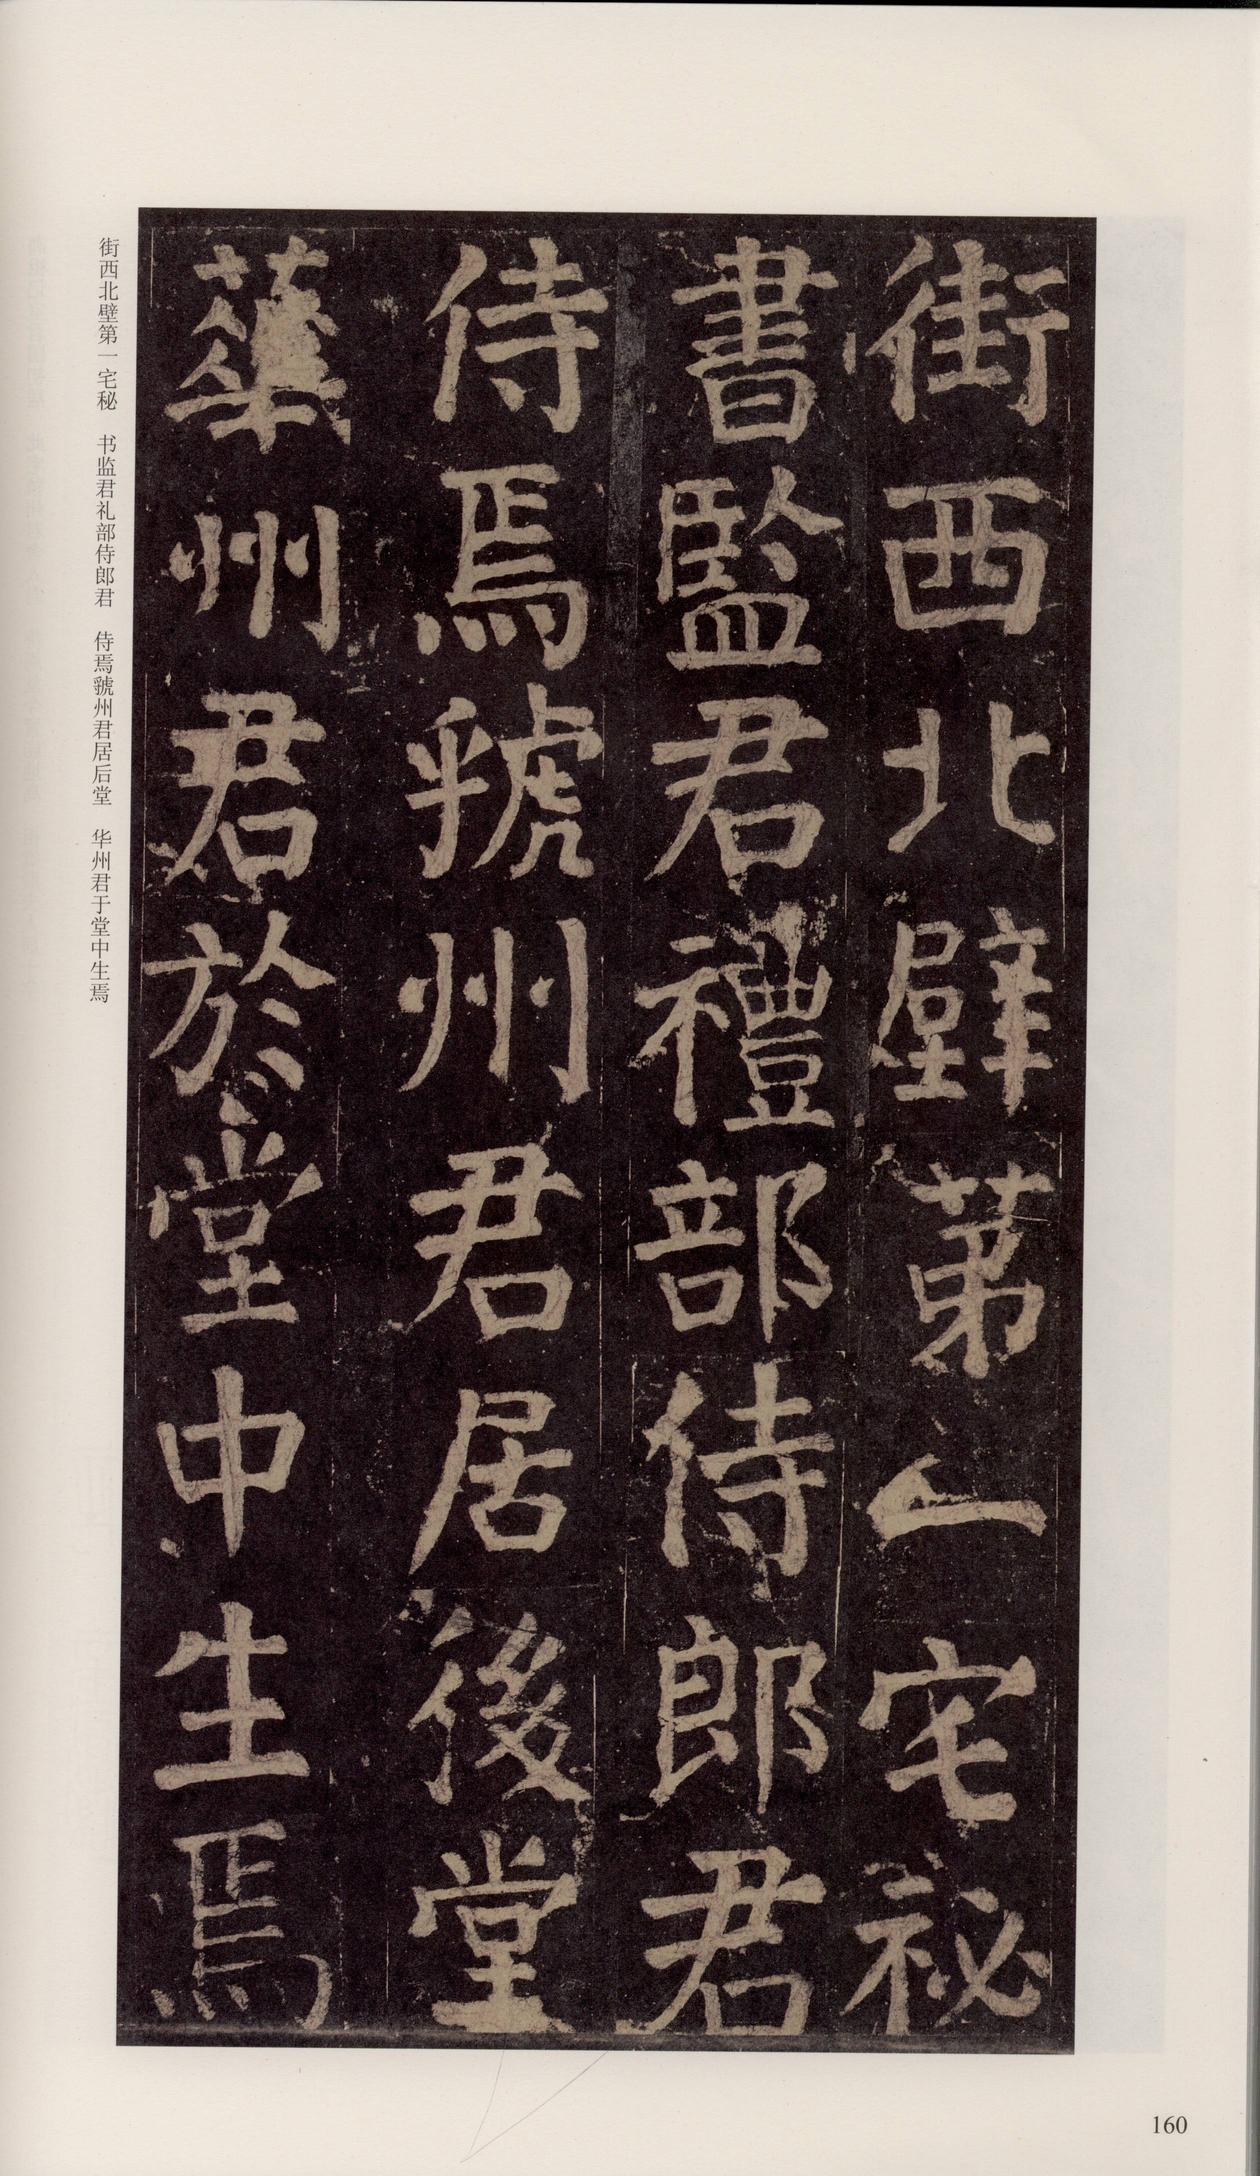 街西北壁苐一宅祕
書監君禮部侍郎君
侍焉虢州君居後堂
華州君於堂中生焉
街西北壁第一宅秘 书监君礼部侍郎君 侍焉虢州君居后堂 华州君于堂中生焉
160